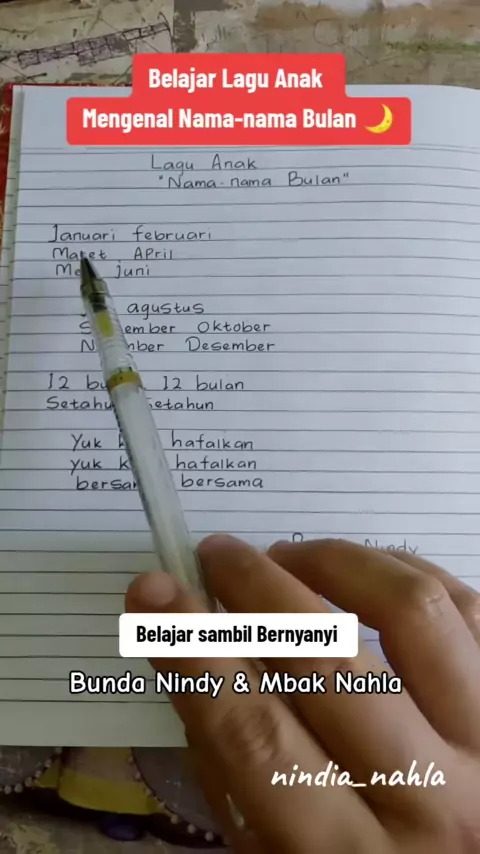 Belajar Lagu Anak
Mengenal Nama-nama Bulan 🌙
Lagu Anak
"Nama-nama Bulan"
Januari februari
Maret April
juni
agustus
Oktober
Desember
12 12 bulan
Setahun
Yuk hafalkan
yuk hafalkan
bersama
Nindy
Belajar sambil Bernyanyi
Bunda Nindy & Mbak Nahla
nindia_nahla